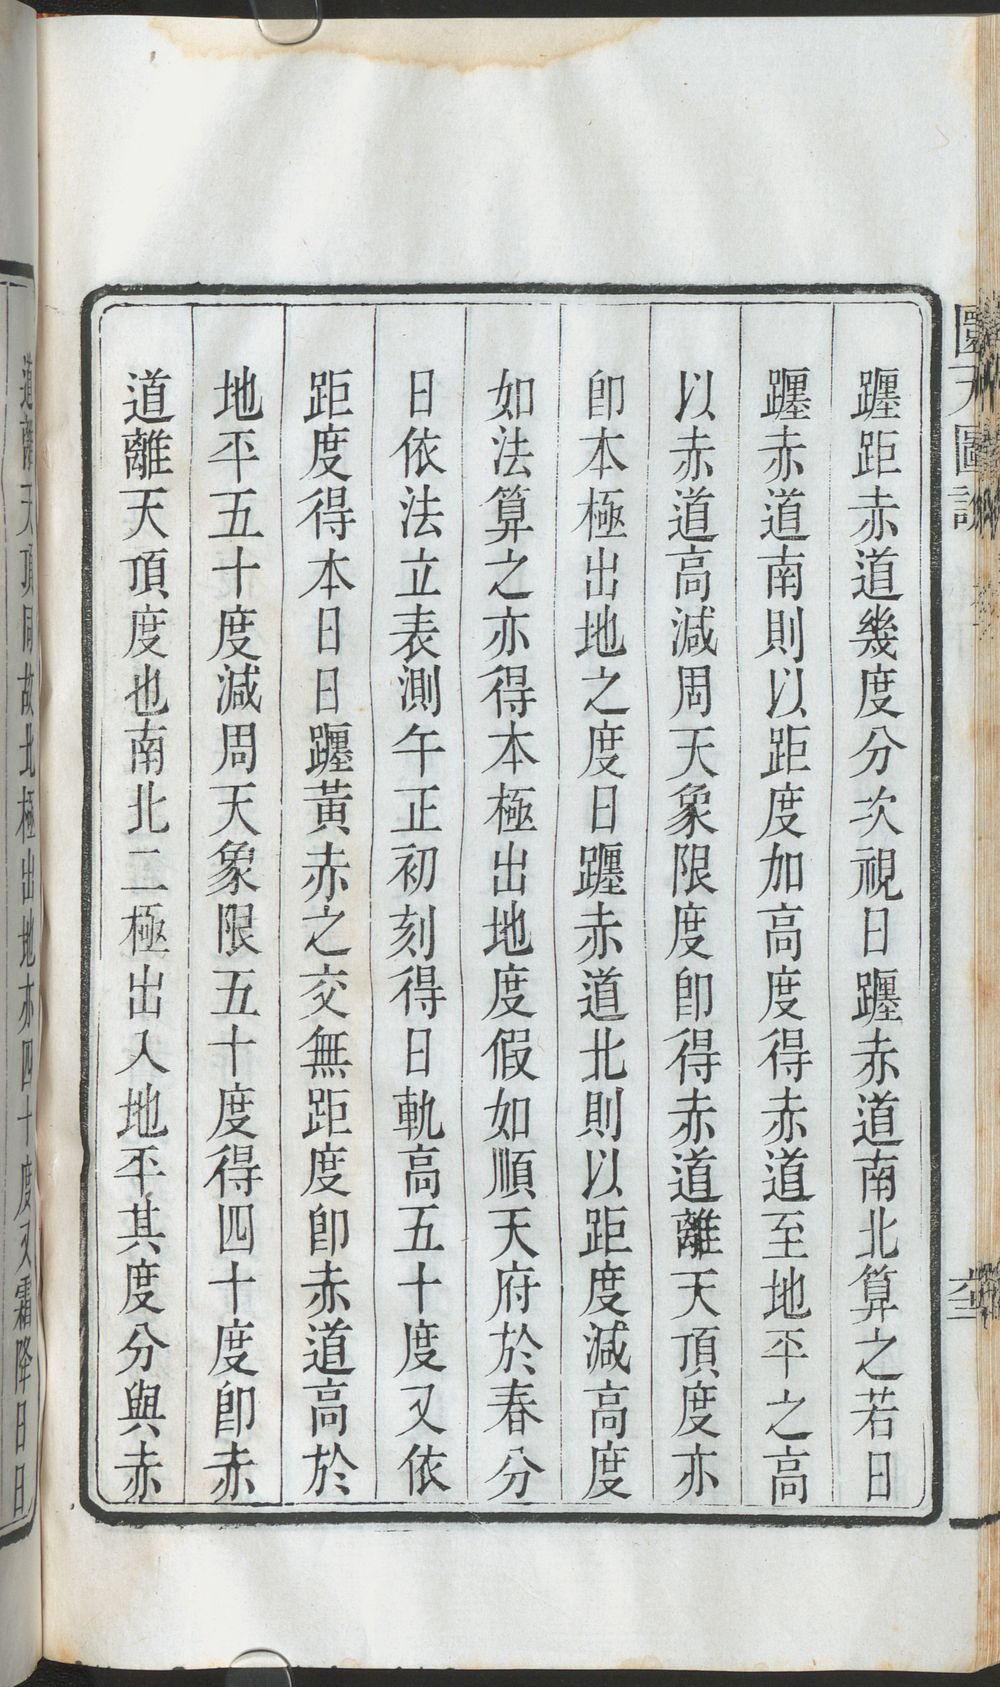 躔距赤道幾度分次視日躔赤道南北算之若日
躔赤道南則以距度加高度得赤道至地平之高
以赤道高減周天象限度卽得赤道離天頂度亦
卽本極出地之度日躔赤道北則以距度減高度
如法算之亦得本極出地度假如順天府於春分
日依法立表測午正初刻得日軌高五十度又依
距度得本日日躔黃赤之交無距度卽赤道高於
地平五十度減周天象限五十度得四十度卽赤
道離天頂度也南北二極出入地平其度分與赤
道離天頂同故北極出地亦四十度又霜降日日